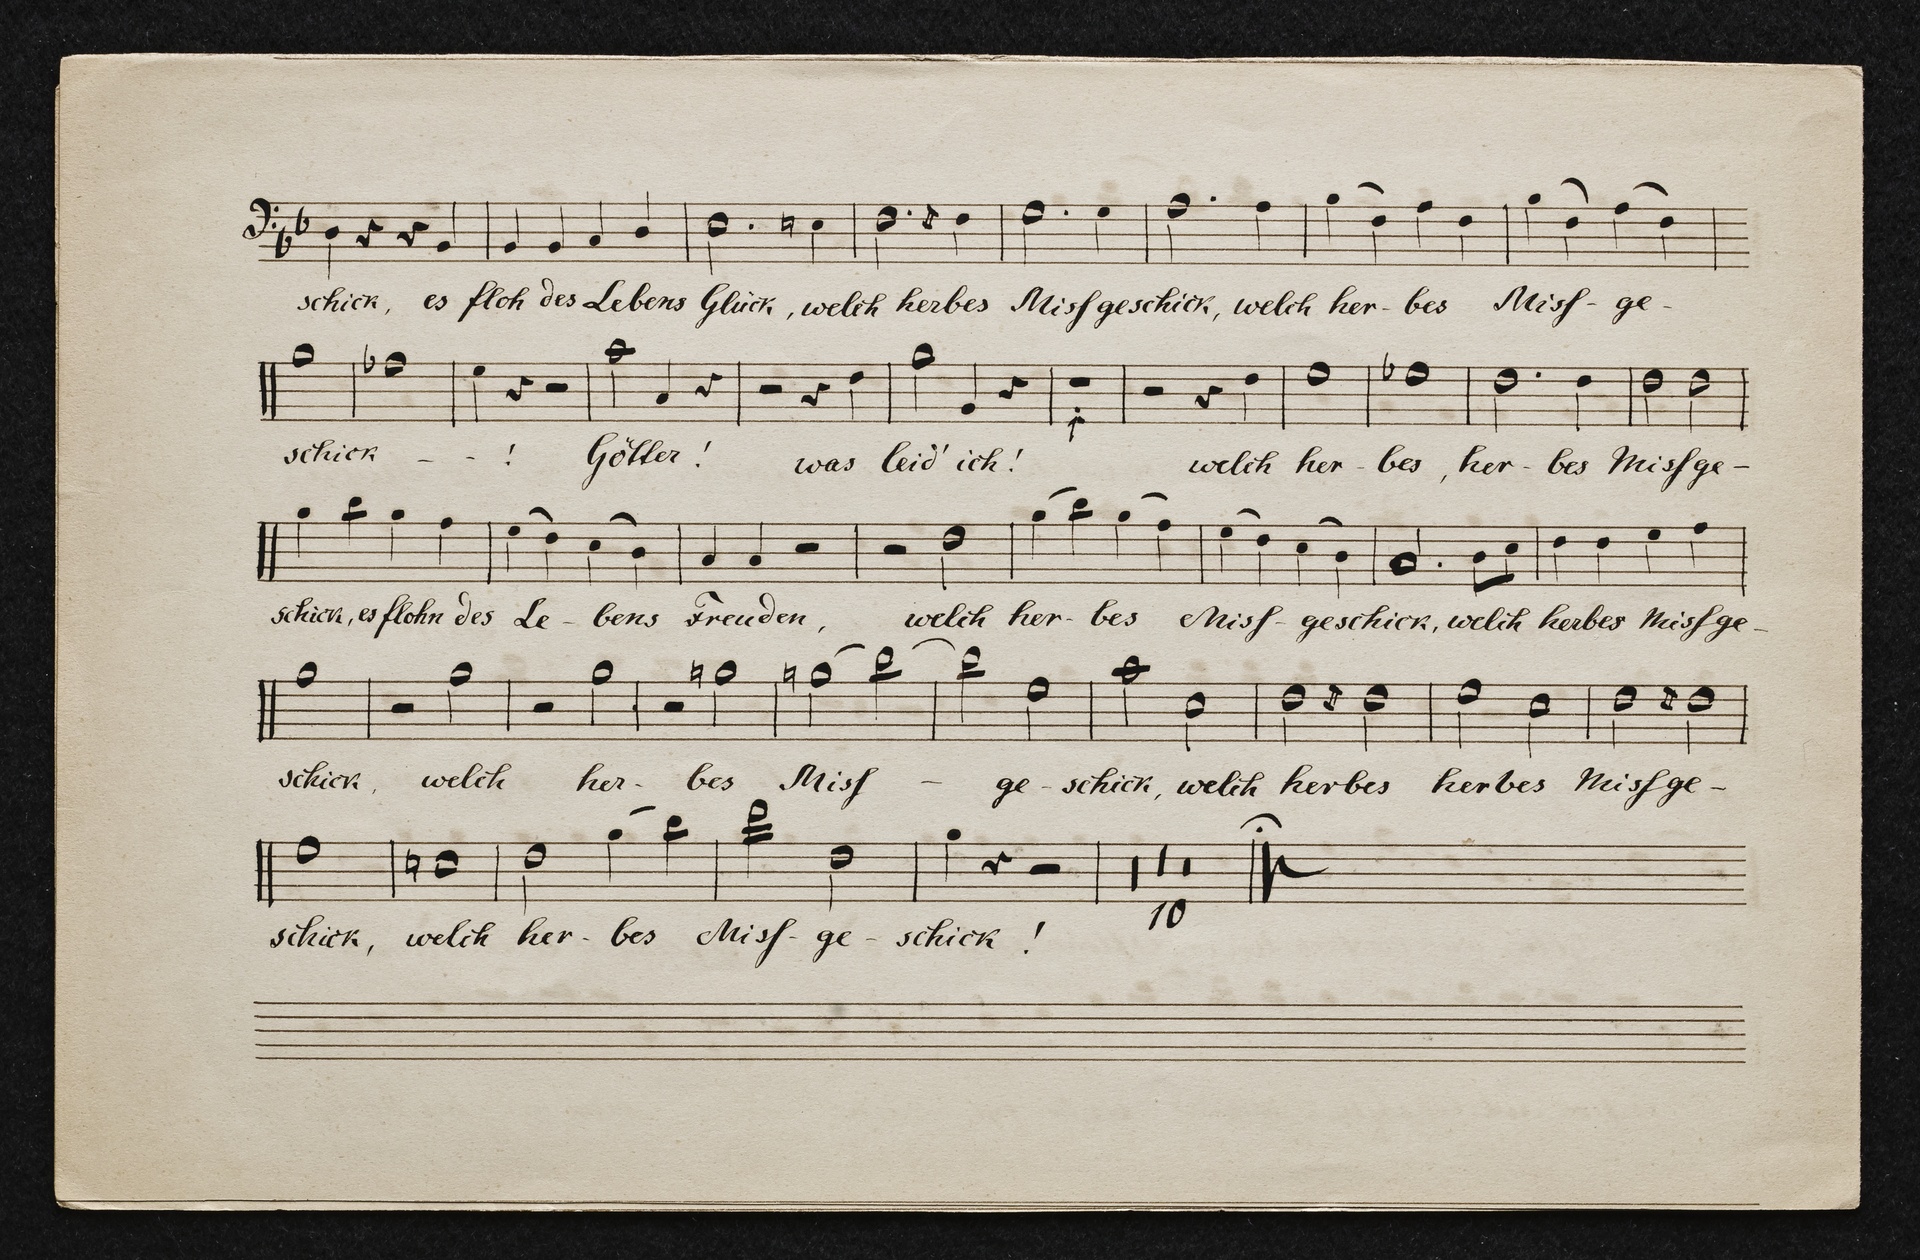 schick, es floh des Lebens Glück, welch herbes Missgeschick, welch her- bes Miss- ge-
schick - - ! Götter! was leid' ich! welch her- bes, her- bes Missge-
schick, es flohn des Le- bens Freuden, welch her- bes Miss- geschick, welch herbes Missge-
schick, welch her- bes Miss - ge- schick, welch herbes herbes Missge-
schick, welch her- bes Miss- ge- schick!
10